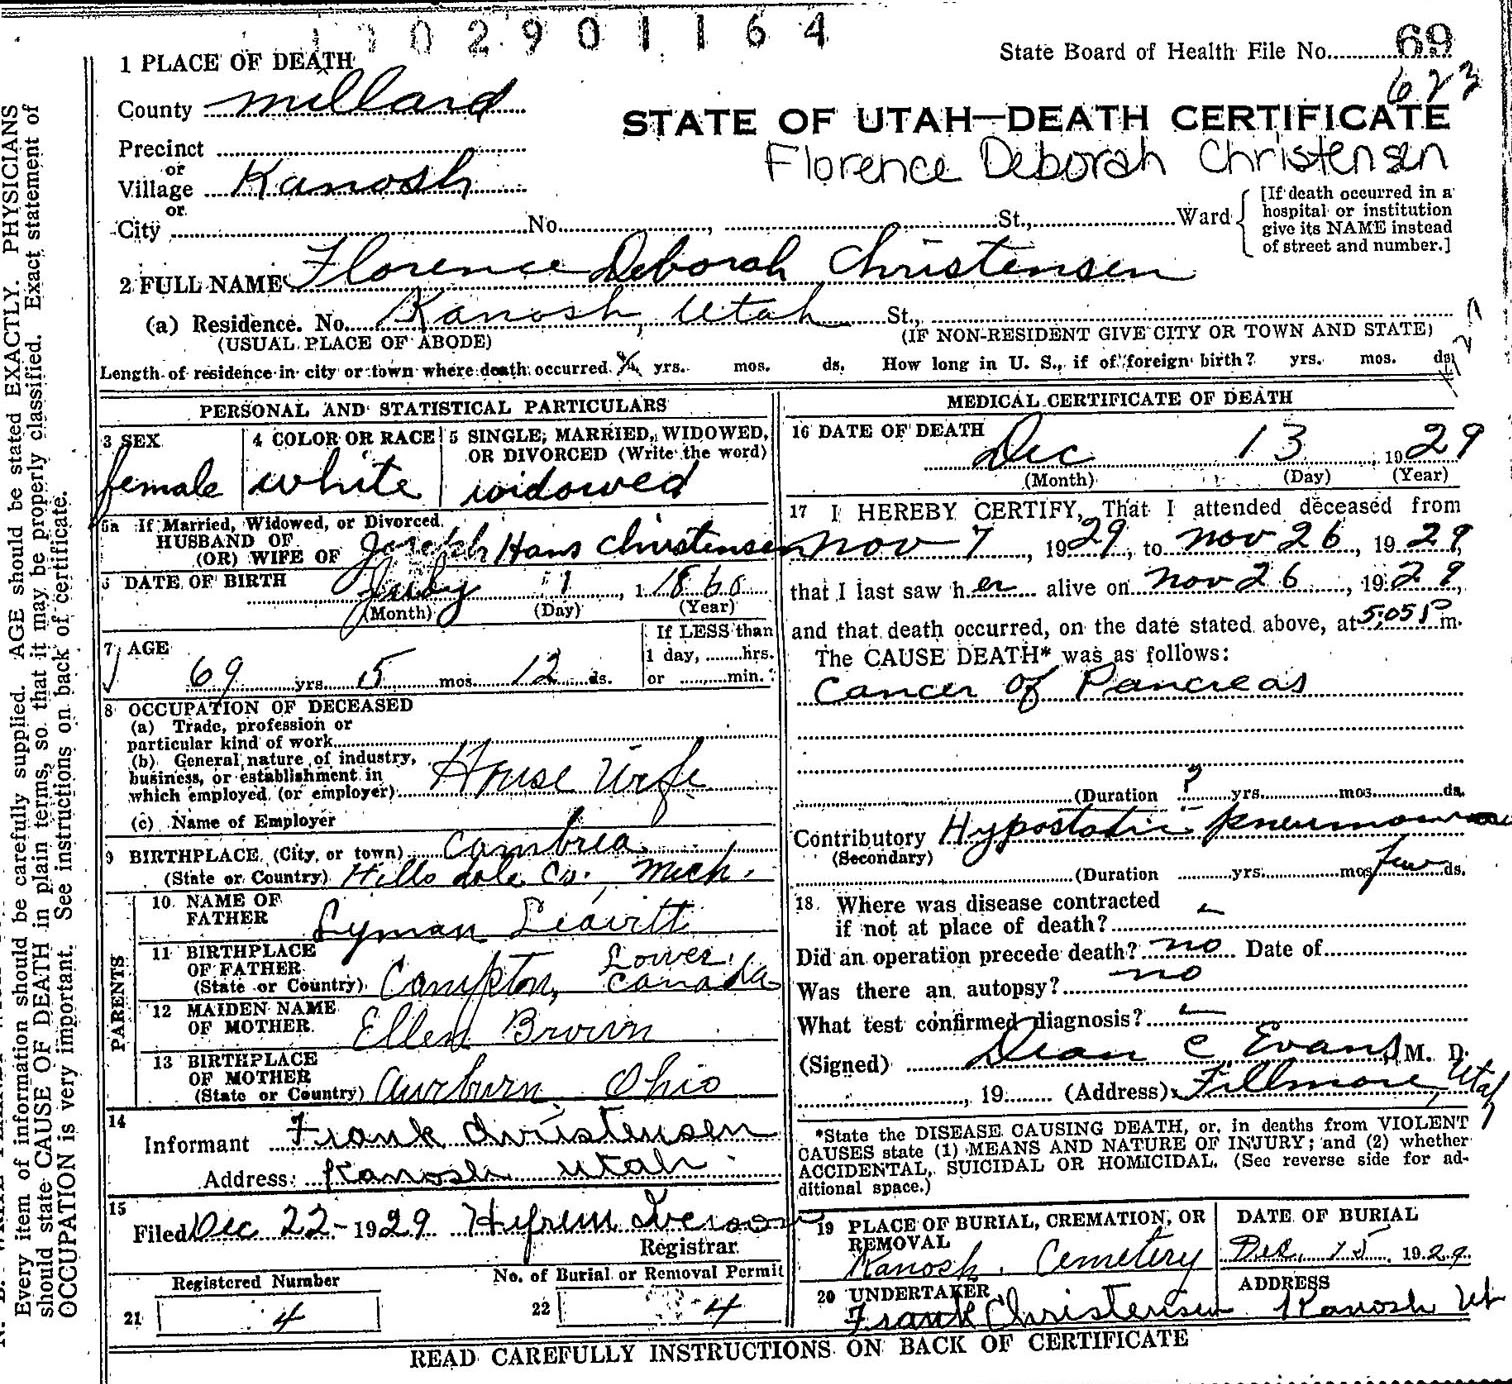 2901164
State Board of Health File No. 69
623
1 PLACE OF DEATH
County Millard
STATE OF UTAH—DEATH CERTIFICATE
Florence Deborah Christensen
Precinct
or
Village Kanosh
or
City No. , St., Ward
[If death occurred in a
hospital or institution
give its NAME instead
of street and number.]
2 FULL NAME Florence Deborah Christensen
(a) Residence. No. Kanosh, Utah St.,
(USUAL PLACE OF ABODE) (IF NON-RESIDENT GIVE CITY OR TOWN AND STATE)
Length of residence in city or town where death occurred yrs. mos. ds. How long in U. S., if of foreign birth? yrs. mos. ds.
PERSONAL AND STATISTICAL PARTICULARS
3 SEX
female
4 COLOR OR RACE
white
5 SINGLE, MARRIED, WIDOWED,
OR DIVORCED (Write the word)
widowed
5a If Married, Widowed, or Divorced
HUSBAND OF
(OR) WIFE OF Joseph Hans Christensen
6 DATE OF BIRTH July 1, 1860
(Month) (Day) (Year)
7 AGE
69 yrs. 5 mos. 12 ds.
If LESS than
1 day, hrs.
or min.
8 OCCUPATION OF DECEASED
(a) Trade, profession or
particular kind of work
(b) General nature of industry,
business, or establishment in
which employed (or employer) House Wife
(c) Name of Employer
9 BIRTHPLACE (City, or town) Cambrea
(State or Country) Hillsdale Co., Mich.
PARENTS
10 NAME OF
FATHER Lyman Leavitt
11 BIRTHPLACE
OF FATHER
(State or Country) Compton, Lower Canada
12 MAIDEN NAME
OF MOTHER Ellen Brown
13 BIRTHPLACE
OF MOTHER
(State or Country) Aurburn Ohio
14
Informant Frank Christensen
Address Kanosh Utah
15
Filed Dec 22- 1929 Hyrum Iverson
Registrar
Registered Number
21 4
No. of Burial or Removal Permit
22 4
MEDICAL CERTIFICATE OF DEATH
16 DATE OF DEATH
Dec 13, 1929
(Month) (Day) (Year)
17 I HEREBY CERTIFY, That I attended deceased from
Nov 7, 1929, to Nov 26, 1929,
that I last saw her alive on Nov 26, 1929,
and that death occurred, on the date stated above, at 5:05 P m.
The CAUSE DEATH* was as follows:
Cancer of Pancreas
(Duration ? yrs. mos. ds.
Contributory Hypostatic pneumonia
(Secondary)
(Duration yrs. mos. few ds.
18. Where was disease contracted
if not at place of death?
Did an operation precede death? no Date of
Was there an autopsy? no
What test confirmed diagnosis?
(Signed) Dean C Evans, M. D.
, 19 (Address) Fillmore, Utah
*State the DISEASE CAUSING DEATH, or, in deaths from VIOLENT
CAUSES state (1) MEANS AND NATURE OF INJURY; and (2) whether
ACCIDENTAL, SUICIDAL OR HOMICIDAL. (See reverse side for ad-
ditional space.)
19 PLACE OF BURIAL, CREMATION, OR
REMOVAL
Kanosh Cemetery
DATE OF BURIAL
Dec. 15 1929
20 UNDERTAKER
Frank Christensen
ADDRESS
Kanosh Ut
READ CAREFULLY INSTRUCTIONS ON BACK OF CERTIFICATE
Every item of information should be carefully supplied. AGE should be stated EXACTLY. PHYSICIANS
should state CAUSE OF DEATH in plain terms, so that it may be properly classified. Exact statement of
OCCUPATION is very important. See instructions on back of certificate.